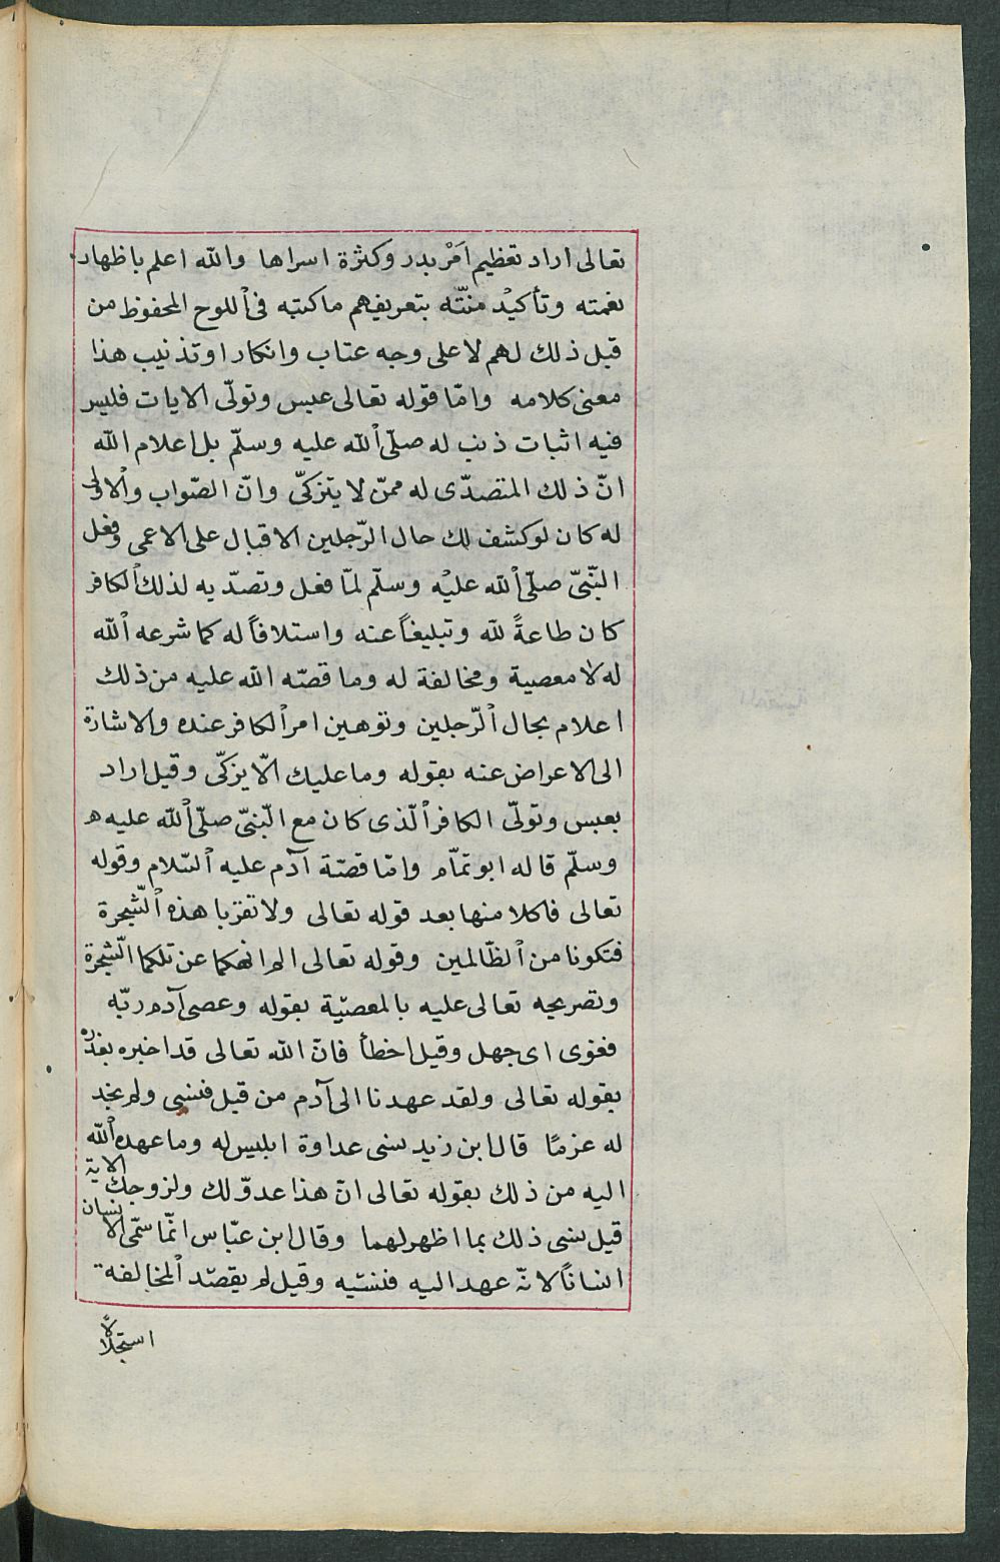 تعالى اراد تعظيم اَمْر بدر وكثرة اسراها والله اعلم باظهار
نعمته وتأكيْد منّته بتعريفهم ماكتبه فى اللوح المحفوظ من
قبل ذلك لهم لا على وجه عتاب وانكار اوتذنيب هذا
معنى كلامه وامّا قوله تعالى عبس وتولّى الايات فليس
فيه اثبات ذنب له صلّى الله عليه وسلّم بل اعلام الله
انّ ذلك المتصدّى له ممّن لا يتزكىّ وانّ الصّواب والاولى
له كان لوكشف لك حال الرّجلين الاقبال على الاعمى وفعل
النّبىّ صلّى الله عليْه وسلّم لمّا فعل وتصدّيه لذلك الكافر
كان طاعةً لله وتبليغاً عنه واستلافاً له كما شرعه الله
له لا معصية ومخالفة له وما قصّه الله عليه من ذلك
اعلام بحال الرّجلين وتوهين امر الكافر عنده والاشارة
الى الاعراض عنه بقوله وما عليك الّا يزكّى وقيل اراد
بعبس وتولّى الكافر الّذى كان مع النّبىّ صلّى الله عليه
وسلّم قاله ابو تمّام وامّا قصّة آدم عليه السّلام وقوله
تعالى فاكلا منها بعد قوله تعالى ولا تقربا هذه الشّجرة
فتكونا من الظّالمين وقوله تعالى الم انهكما عن تلكما الشّجرة
وتصريحه تعالى عليه بالمعصيّة بقوله وعصى آدم ربّه
فغوى اى جهل وقيل اخطأ فانّ الله تعالى قد اخبره بعذره
بقوله تعالى ولقد عهدنا الى آدم من قبل فنسى ولم نجد
له عزمًا قال ابن زيد نسى عداوة ابليس له وما عهده الله
اليه من ذلك بقوله تعالى انّ هذا عدوّ لك ولزوجك الاية
قيل نسى ذلك بما اظهر لهما وقال ابن عبّاس انّما سمّى الانسان
انساناً لانّه عهد اليه فنسيه وقيل لم يقصد المخالفة
استحلالاً